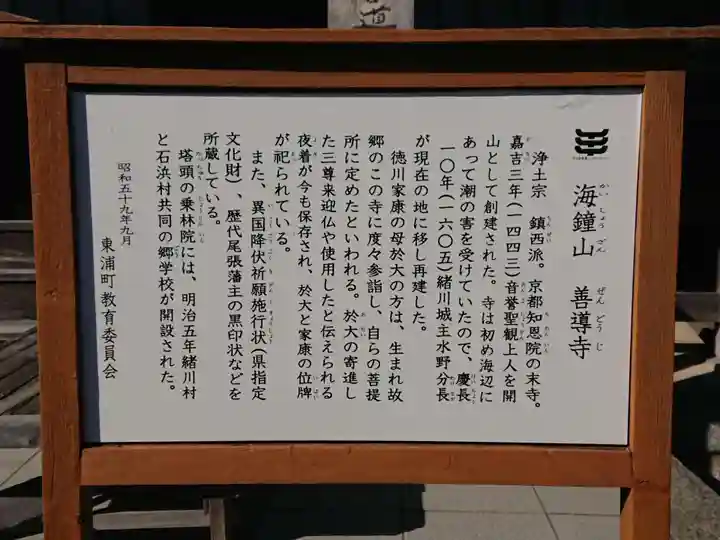 道
海鐘山 善導寺
浄土宗 鎮西派。京都知恩院の末寺。
嘉吉三年(一四四三)音誉聖観上人を開
山として創建された。寺は初め海辺に
あって潮の害を受けていたので、慶長
一〇年(一六〇五)緒川城主水野分長
が現在の地に移し再建した。
徳川家康の母於大の方は、生まれ故
郷のこの寺に度々参詣し、自らの菩提
所に定めたといわれる。於大の寄進し
た三尊来迎仏や使用したと伝えられる
夜着が今も保存され、於大と家康の位牌
が祀られている。
また、異国降伏祈願施行状(県指定
文化財)、歴代尾張藩主の黒印状などを
所蔵している。
塔頭の乗林院には、明治五年緒川村
と石浜村共同の郷学校が開設された。
昭和五十九年九月
東浦町教育委員会